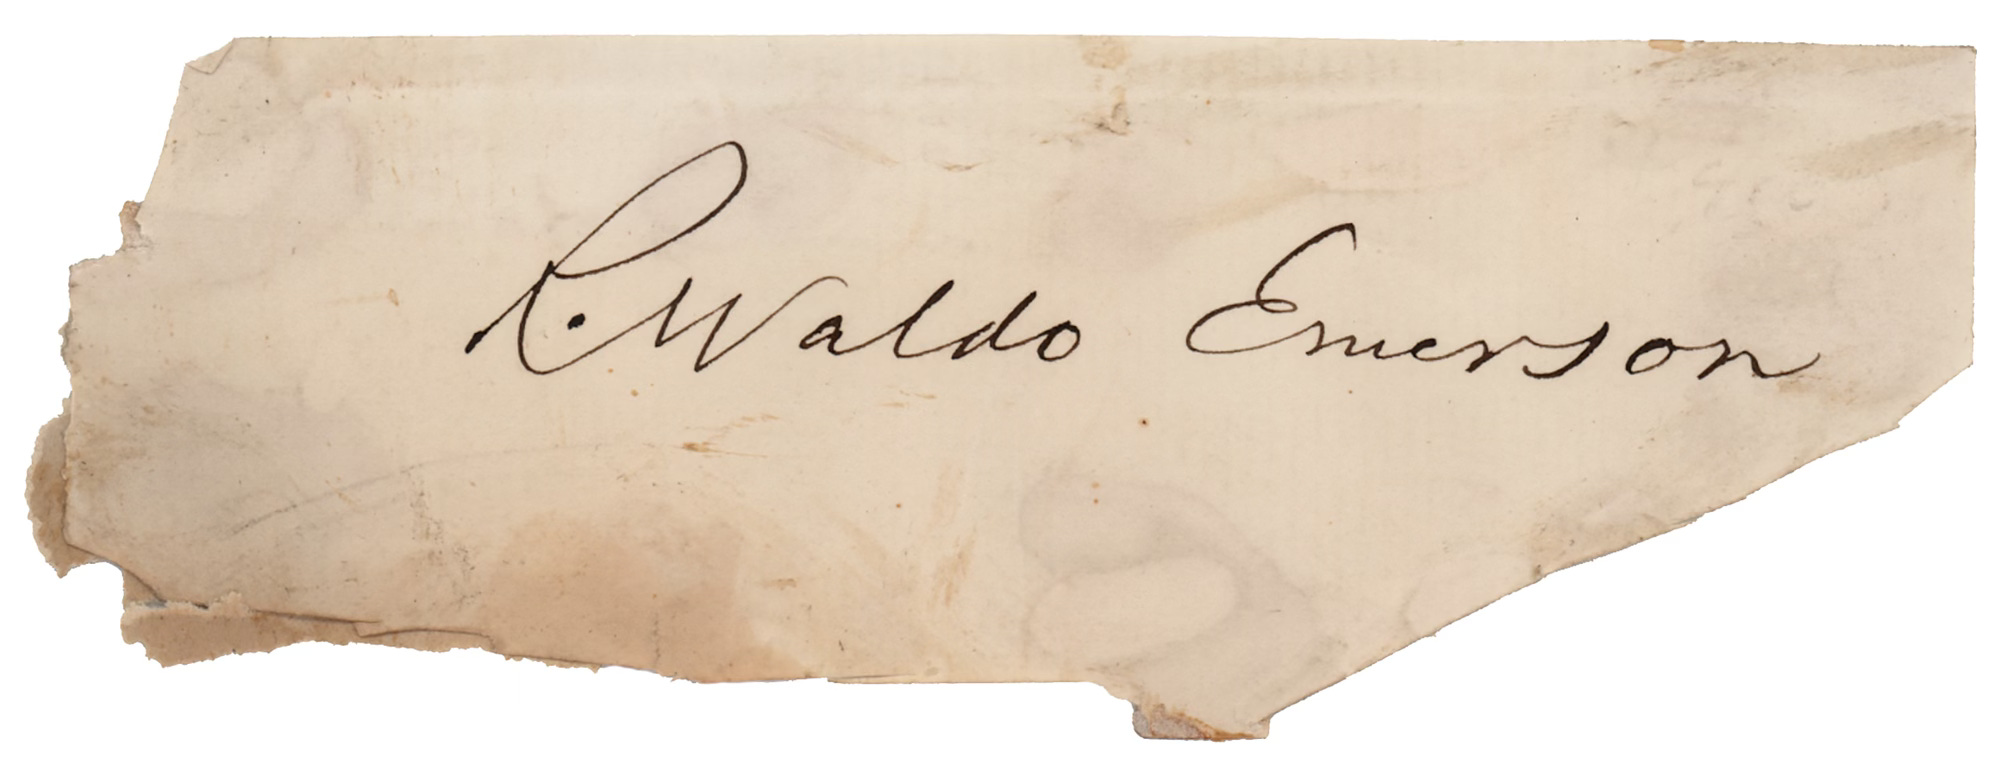 R. Waldo Emerson